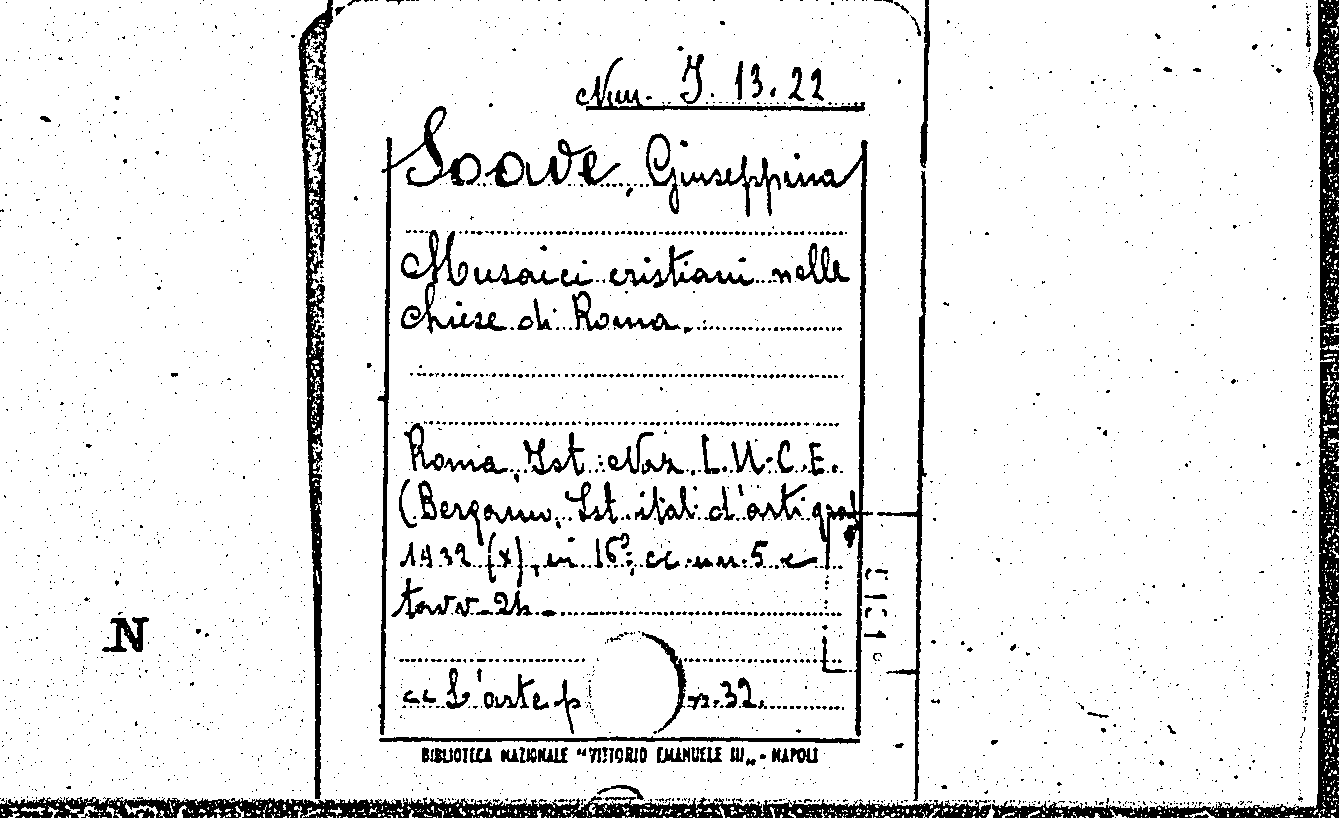 Num. J. 13. 22
Soave, Giuseppina
Musaici cristiani nelle
chiese di Roma.
Roma, Ist. Naz. L.U.C.E.
(Bergamo, Ist. ital. d'arti graf.)
1932 (X), in 16°, cc. nn. 5 e
tavv. 24.
«L'arte p n. 32.
BIBLIOTECA NAZIONALE "VITTORIO EMANUELE III„ - NAPOLI
N